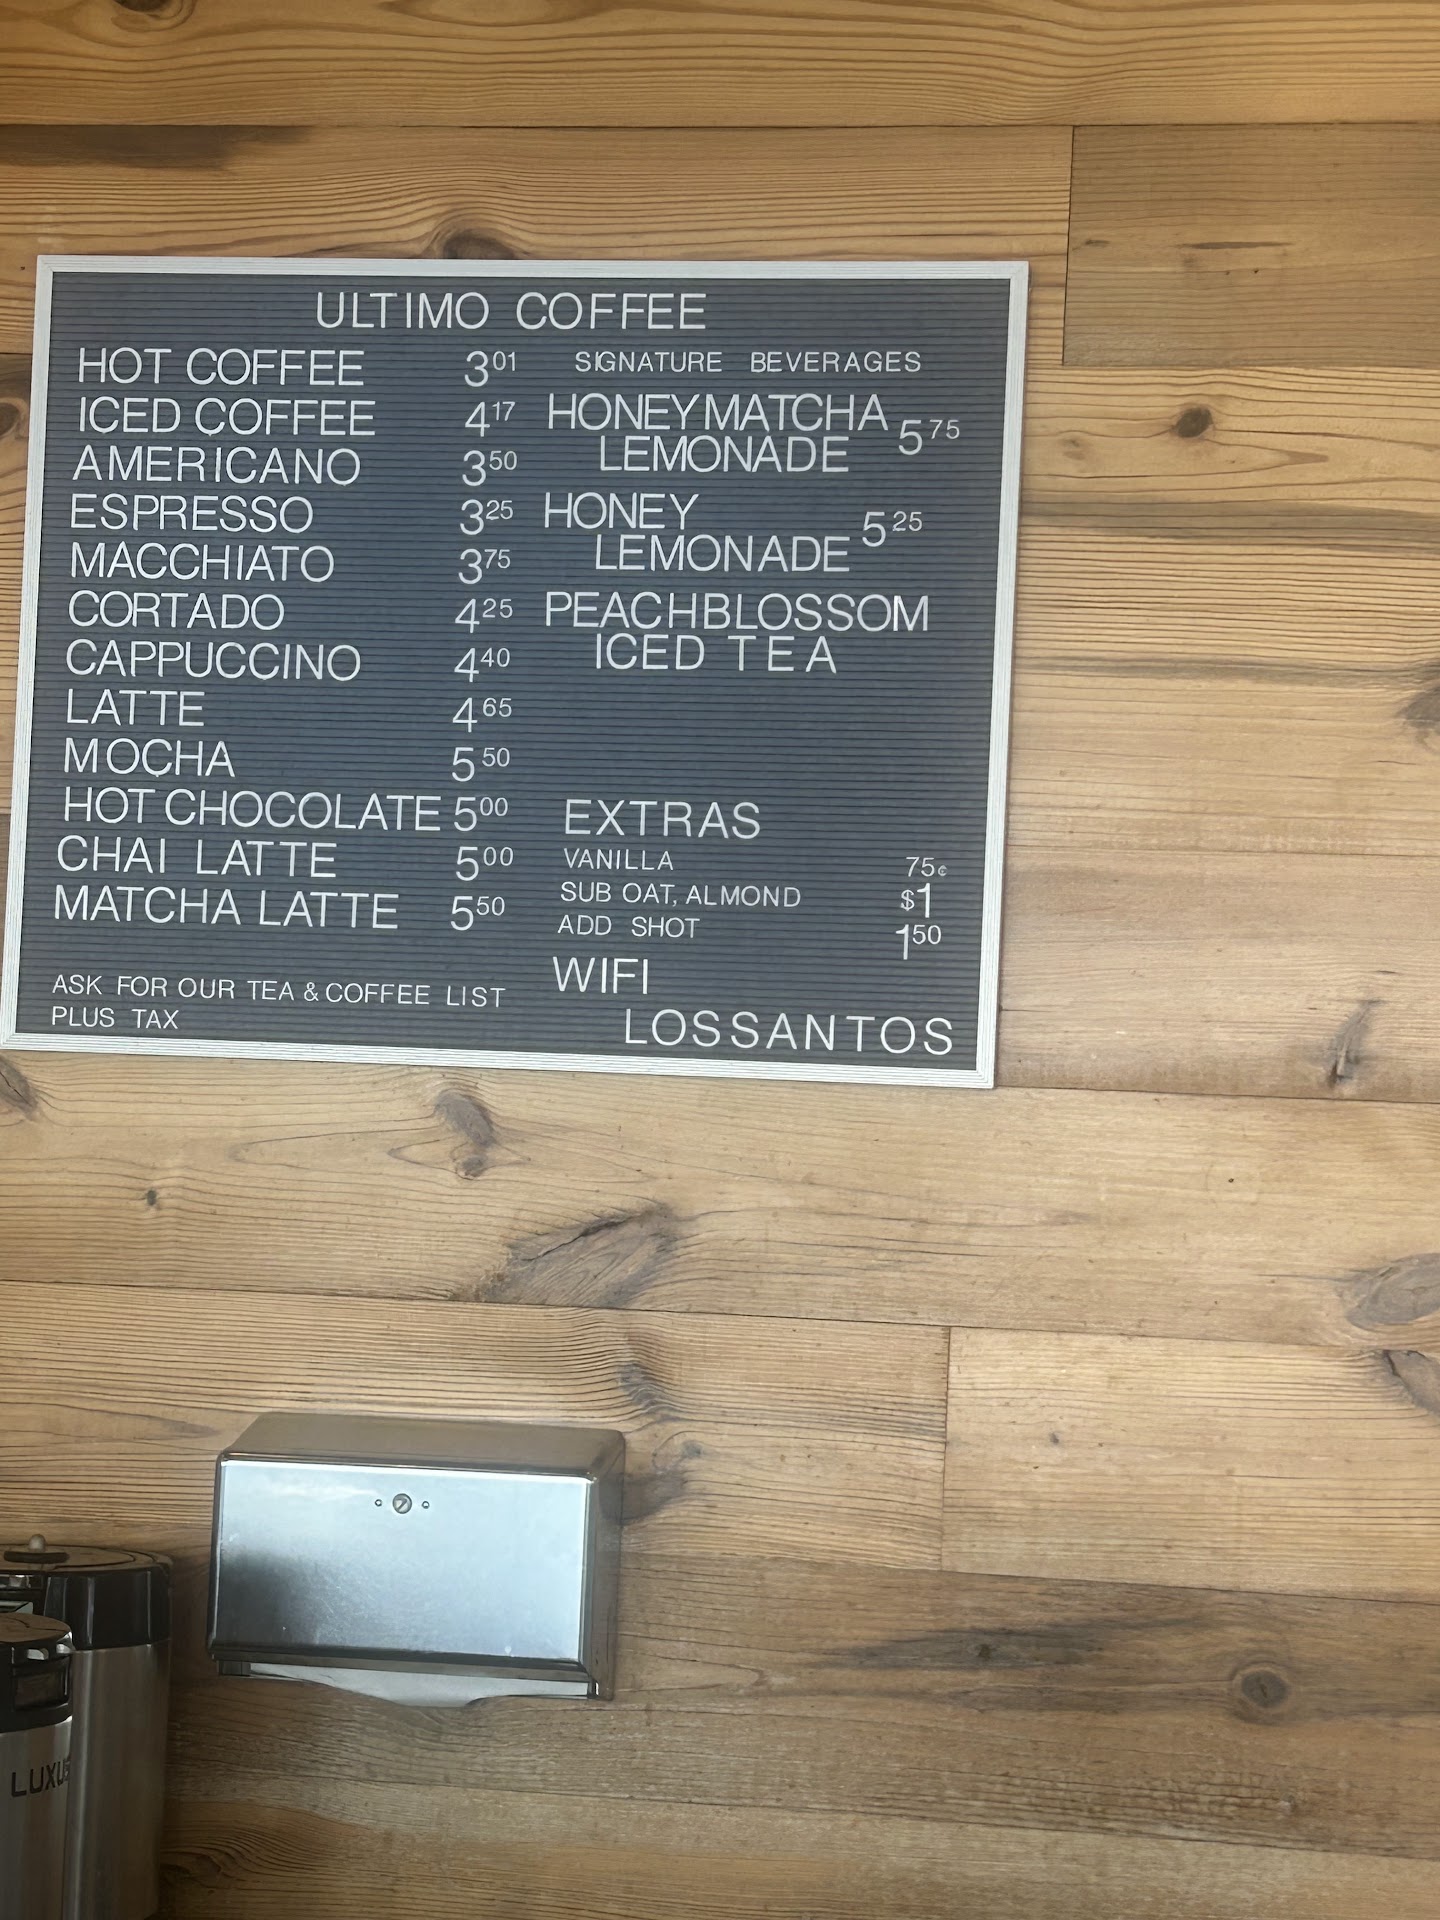 ULTIMO COFFEE
HOT COFFEE 3 01
ICED COFFEE 4 17
AMERICANO 3 50
ESPRESSO 3 25
MACCHIATO 3 75
CORTADO 4 25
CAPPUCCINO 4 40
LATTE 4 65
MOCHA 5 50
HOT CHOCOLATE 5 00
CHAI LATTE 5 00
MATCHA LATTE 5 50
ASK FOR OUR TEA & COFFEE LIST
PLUS TAX
SIGNATURE BEVERAGES
HONEY MATCHA
LEMONADE 5 75
HONEY
LEMONADE 5 25
PEACH BLOSSOM
ICED TEA
EXTRAS
VANILLA 75¢
SUB OAT, ALMOND $1
ADD SHOT 1 50
WIFI
LOSSANTOS